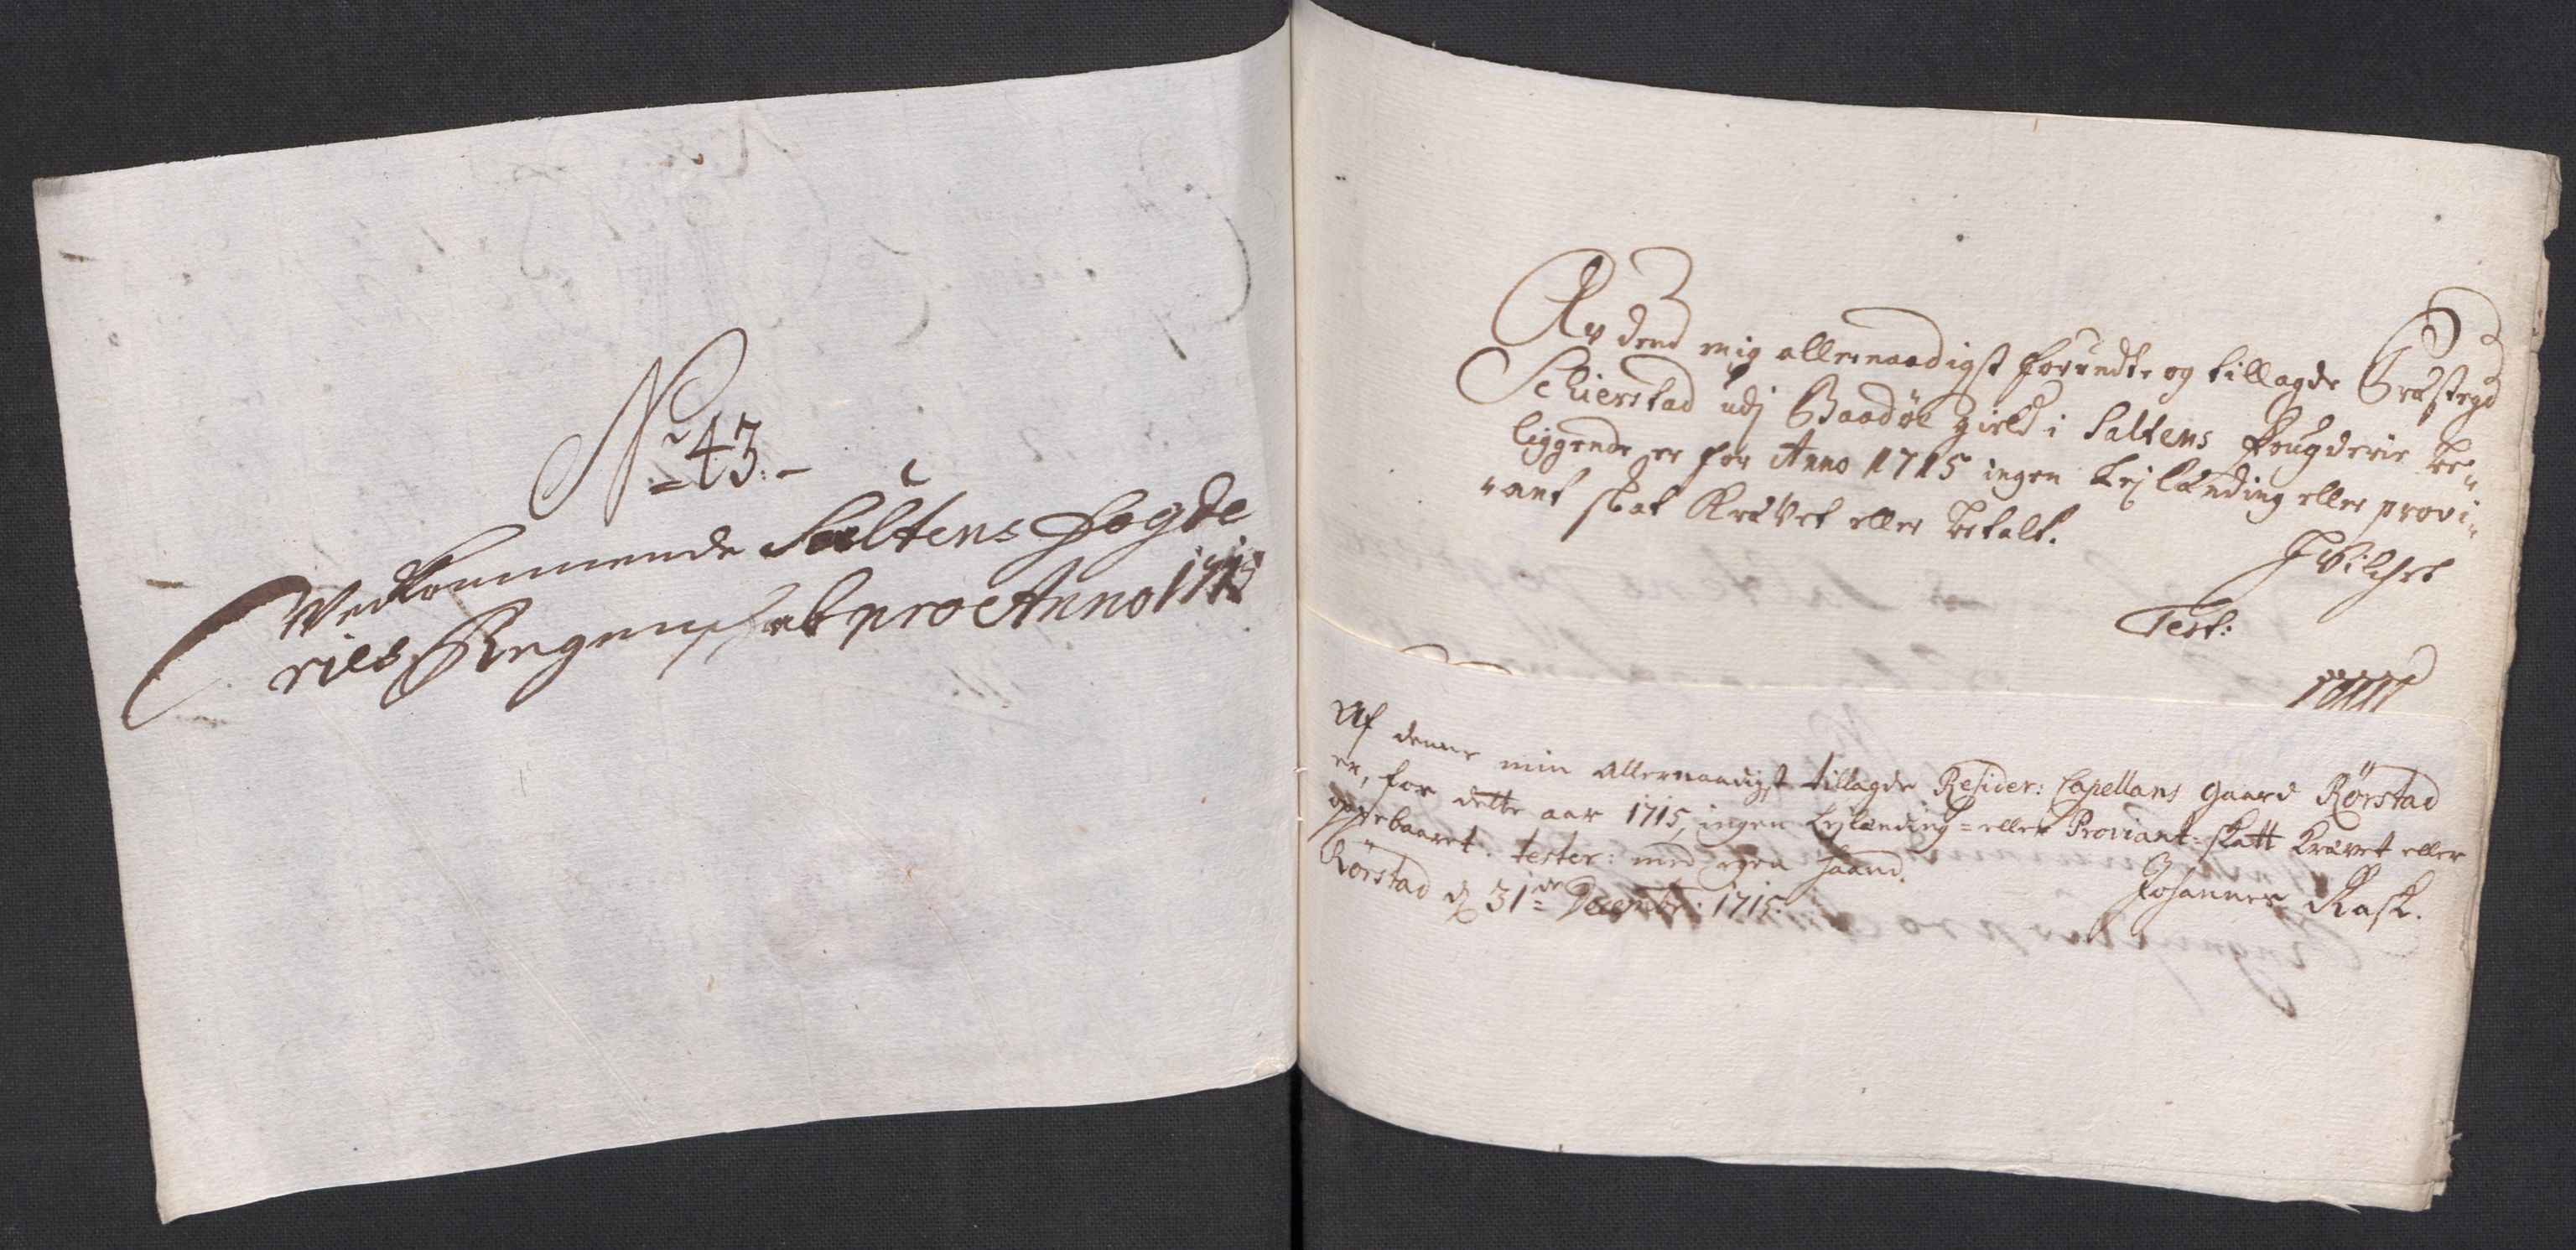 No 43.
Vedkommende Saltens Fogde
ries Regenschab pro Anno 1715
Av dend mig allernaadigst forundte og tillagde Præstegd
Schierstad udj Baadøe gield i Saltens Fougderie be-
liggende er for Anno 1715 ingen Lejlænding eller provi-
ant skat Krævet eller betalt.
Test:
Af denne min allernaadigst tillagde Resider: Capellans gaard Rörstad
er, for dette aar 1715, ingen Lejlænding= eller Proviant=skatt krævet eller
oppebaaret. tester: med egen haand.
Rörstad d 31de Decembr: 1715.
Johannes Rask.